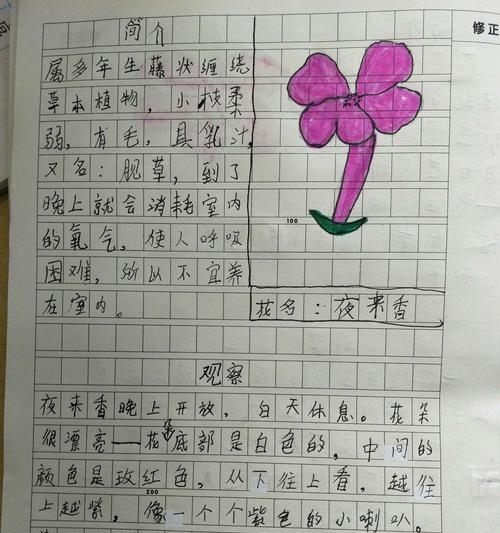 修正
简介
属多年生藤状缠绕
草本植物，小枝柔
弱，有毛，具乳汁，
又名：肥草，到了
晚上就会消耗室内
的氧气，使人呼吸
困难，所以不宜养
在室内。
100
花名：夜来香
观察
夜来香晚上开放，白天休息。花朵
很漂亮——花朵底部是白色的，中间的
颜色是玫红色，从下往上看，越往
200
上越紫，像一个个紫色的小喇叭。